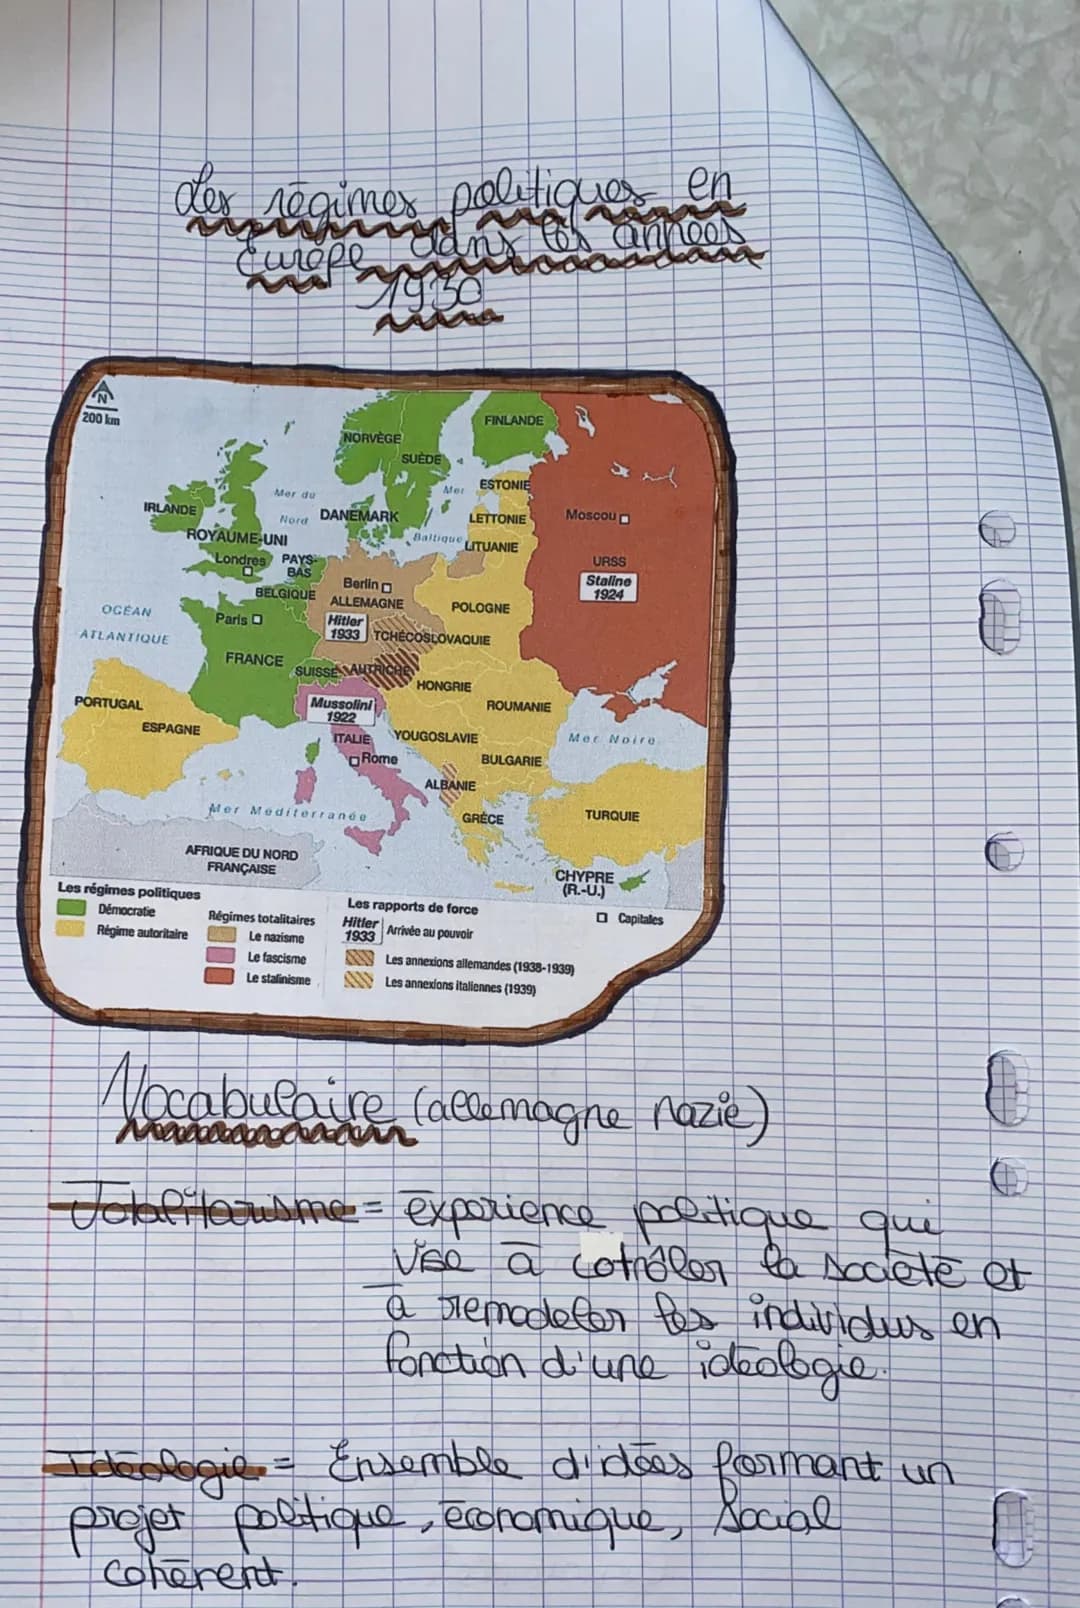 Les régimes politiques en
Europe dans les années
1930
N
200 km
FINLANDE
NORVÈGE
SUÈDE
ESTONIE
Mer du
Nord
Mer
Baltique
IRLANDE
DANEMARK
LETTONIE
Moscou
ROYAUME-UNI
LITUANIE
Londres
PAYS-
BAS
URSS
Berlin
Staline
1924
BELGIQUE
ALLEMAGNE
OCÉAN
ATLANTIQUE
Paris
Hitler
1933
POLOGNE
TCHÉCOSLOVAQUIE
FRANCE
SUISSE
AUTRICHE
HONGRIE
PORTUGAL
Mussolini
1922
ROUMANIE
ESPAGNE
ITALIE
YOUGOSLAVIE
Mer Noire
Rome
BULGARIE
ALBANIE
Mer Méditerranée
GRÈCE
TURQUIE
AFRIQUE DU NORD
FRANÇAISE
CHYPRE
(R.-U.)
Les régimes politiques
Démocratie
Régime autoritaire
Régimes totalitaires
Le nazisme
Le fascisme
Le stalinisme
Les rapports de force
Hitler
1933
Arrivée au pouvoir
Les annexions allemandes (1938-1939)
Les annexions italiennes (1939)
Capitales
Vocabulaire (allemagne nazie)
Totalitarisme = expérience politique qui
vise à cotrôler la société et
à remodeler les individus en
fonction d'une idéologie.
Idéologie = Ensemble d'idées formant un
projet politique, économique, social
cohérent.